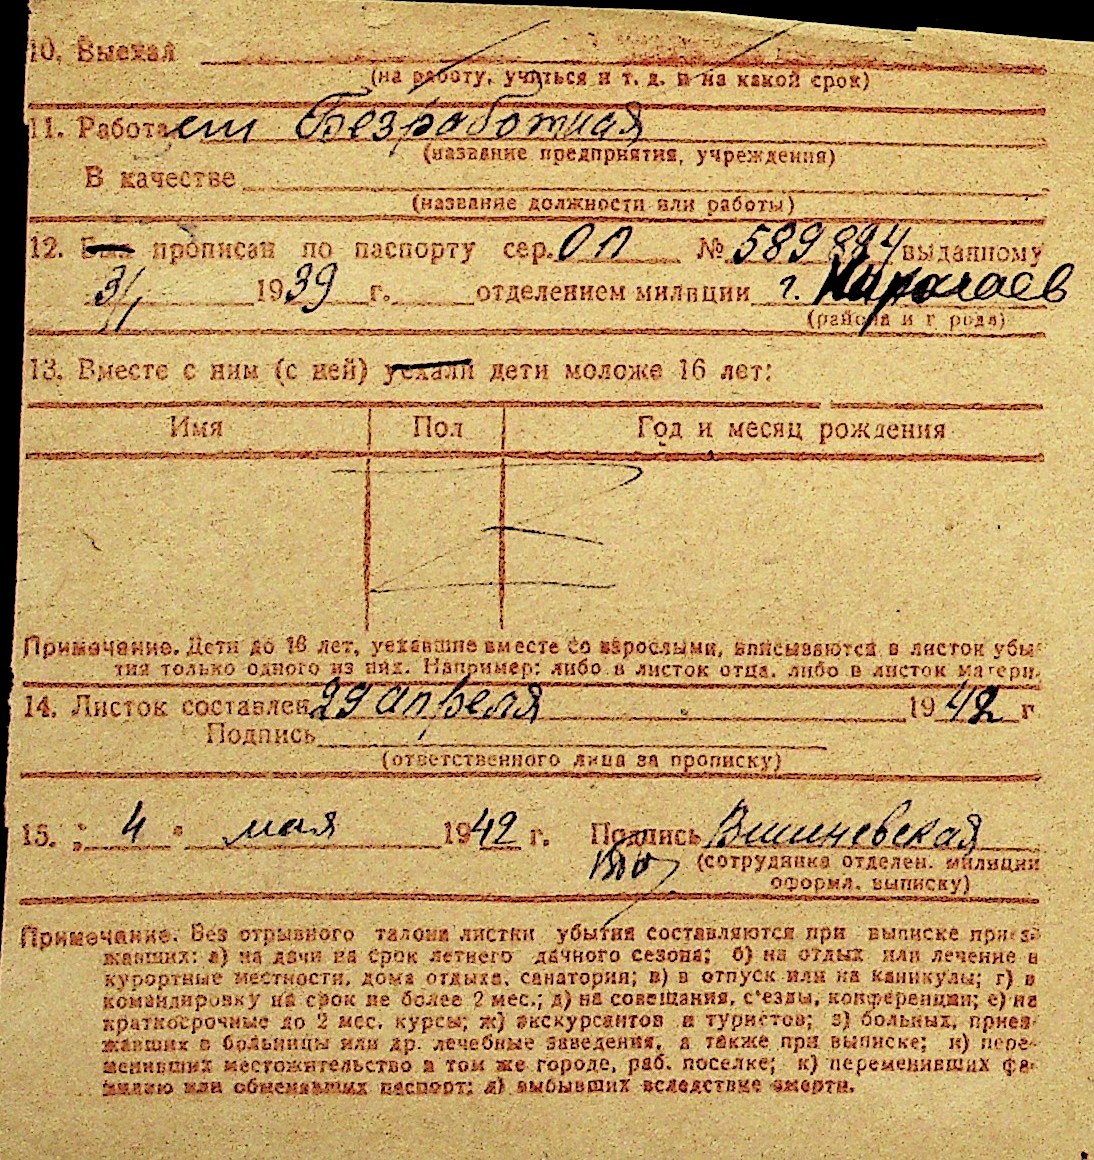 10. Выехал
(на работу, учиться и т. д. и на какой срок)
11. Работает Безработная
(название предприятия, учреждения)
В качестве
(название должности или работы)
12. Был прописан по паспорту сер. ОЛ № 589894 выданному
3/ 1939 г. отделением милиции г.
(района и города)
13. Вместе с ним (с ней) уехали дети моложе 16 лет:
Имя Пол Год и месяц рождения
Примечание. Дети до 16 лет, уехавшие вместе со взрослыми, вписываются в листок убы-
тия только одного из них. Например: либо в листок отца, либо в листок матери.
14. Листок составлен 29 апреля 1942 г
Подпись
(ответственного лица за прописку)
15. „ 4 " мая 1942 г. Подпись Вишневская
(сотрудника отделен. милиции
оформл. выписку)
Примечание. Без отрывного талона листки убытия составляются при выписке приез-
жавших: а) на дачи на срок летнего дачного сезона; б) на отдых или лечение в
курортные местности, дома отдыха, санатория; в) в отпуск или на каникулы; г) в
командировку на срок не более 2 мес.; д) на совещания, с'езды, конференции; е) на
краткосрочные до 2 мес. курсы; ж) экскурсантов и туристов; з) больных, приез-
жавших в больницы или др. лечебные заведения, а также при выписке; и) пере-
менивших местожительство в том же городе, раб. поселке; к) переменивших фа-
милию или обменявших паспорт; л) выбывших вследствие смерти.